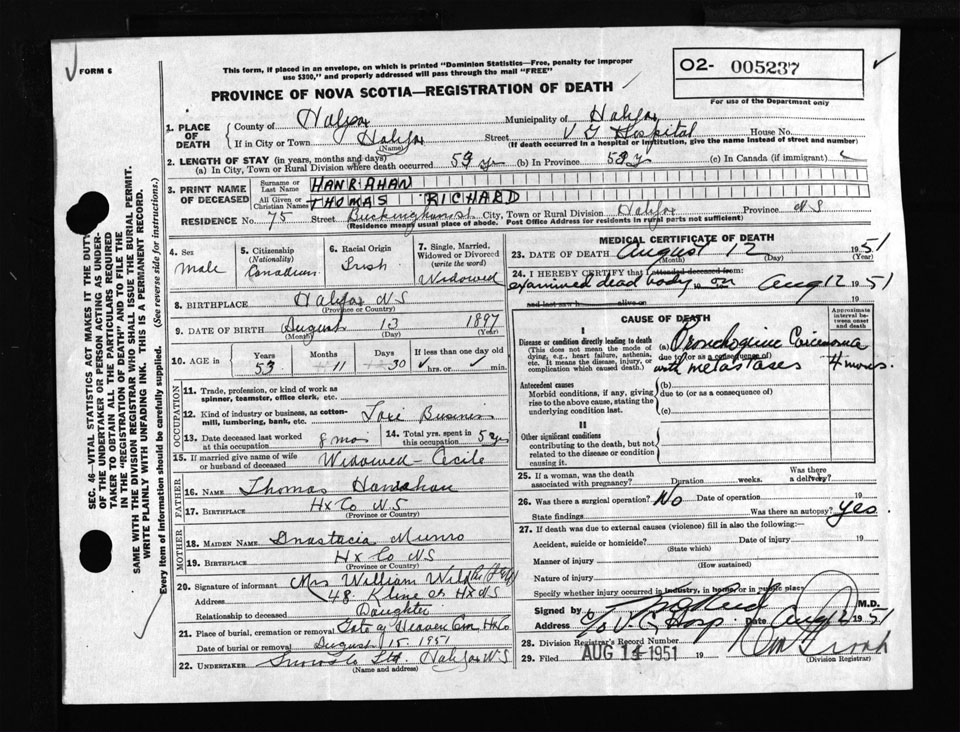 FORM 6
This form, if placed in an envelope, on which is printed "Dominion Statistics—Free, penalty for improper
use $300," and properly addressed will pass through the mail "FREE"
PROVINCE OF NOVA SCOTIA—REGISTRATION OF DEATH
O2- 005237
For use of the Department only
1. PLACE OF DEATH
County of Halifax Municipality of Halifax
If in City or Town Halifax Street V G Hospital House No.
(Name) (If death occurred in a hospital or institution, give the name instead of street and number)
2. LENGTH OF STAY (in years, months and days)
(a) In City, Town or Rural Division where death occurred 53 yr (b) In Province 53 y (c) In Canada (if immigrant)
3. PRINT NAME OF DECEASED
Surname or Last Name HANRAHAN
All Given or Christian Names THOMAS RICHARD
RESIDENCE No. 75 Street Buckingham St City, Town or Rural Division Halifax Province N S
(Residence means usual place of abode. Post Office Address for residents in rural parts not sufficient)
4. Sex Male
5. Citizenship (Nationality) Canadian
6. Racial Origin Irish
7. Single, Married, Widowed or Divorced (write the word) Widowed
8. BIRTHPLACE Halifax N S
(Province or Country)
9. DATE OF BIRTH August 13 1897
(Month) (Day) (Year)
10. AGE in Years 53 Months 11 Days 30 If less than one day old hrs. or min.
OCCUPATION
11. Trade, profession, or kind of work as spinner, teamster, office clerk, etc.
12. Kind of industry or business, as cotton-mill, lumbering, bank, etc. Business
13. Date deceased last worked at this occupation 8 mos 14. Total yrs. spent in this occupation 5 yrs
15. If married give name of wife or husband of deceased Widowed - Cecile
FATHER
16. NAME Thomas Hanrahan
17. BIRTHPLACE Hx Co N S
(Province or Country)
MOTHER
18. MAIDEN NAME Anastacia Munro
19. BIRTHPLACE Hx Co N S
(Province or Country)
20. Signature of informant Mrs William
Address 48 Kline St Hx N S
Relationship to deceased Daughter
21. Place of burial, cremation or removal Gate of Heaven Cem Hx Co
Date of burial or removal August 15 1951
22. UNDERTAKER Snow & Co Ltd. Halifax N S
(Name and address)
MEDICAL CERTIFICATE OF DEATH
23. DATE OF DEATH August 12 1951
(Month) (Day) (Year)
24. I HEREBY CERTIFY that I attended deceased from:
examined dead body on Aug 12 1951
and last saw h alive on
CAUSE OF DEATH
Approximate interval between onset and death
I
Disease or condition directly leading to death
(This does not mean the mode of dying, e.g., heart failure, asthenia, etc. It means the disease, injury, or complication which caused death.)
(a) Bronchogenic Carcinoma
due to (or as a consequence of)
with metastases 4 mos.
Antecedent causes
Morbid conditions, if any, giving rise to the above cause, stating the underlying condition last.
(b)
due to (or as a consequence of)
(c)
II
Other significant conditions
contributing to the death, but not related to the disease or condition causing it.
25. If a woman, was the death associated with pregnancy? Duration weeks. Was there a delivery?
26. Was there a surgical operation? No Date of operation 19
State findings Was there an autopsy? Yes.
27. If death was due to external causes (violence) fill in also the following:—
Accident, suicide or homicide? Date of injury 19
(State which)
Manner of injury
(How sustained)
Nature of injury
Specify whether injury occurred in industry, in home, or in public place
Signed by M.D.
Address c/o V. G. Hosp. Date Aug 12 1951
28. Division Registrar's Record Number
29. Filed AUG 14 1951 19
(Division Registrar)
SEC. 46—VITAL STATISTICS ACT MAKES IT THE DUTY
OF THE UNDERTAKER OR PERSON ACTING AS UNDER-
TAKER TO OBTAIN ALL THE PARTICULARS REQUIRED
IN THE "REGISTRATION OF DEATH" AND TO FILE THE
SAME WITH THE DIVISION REGISTRAR WHO SHALL ISSUE THE BURIAL PERMIT.
WRITE PLAINLY WITH UNFADING INK. THIS IS A PERMANENT RECORD.
Every item of information should be carefully supplied. (See reverse side for instructions.)